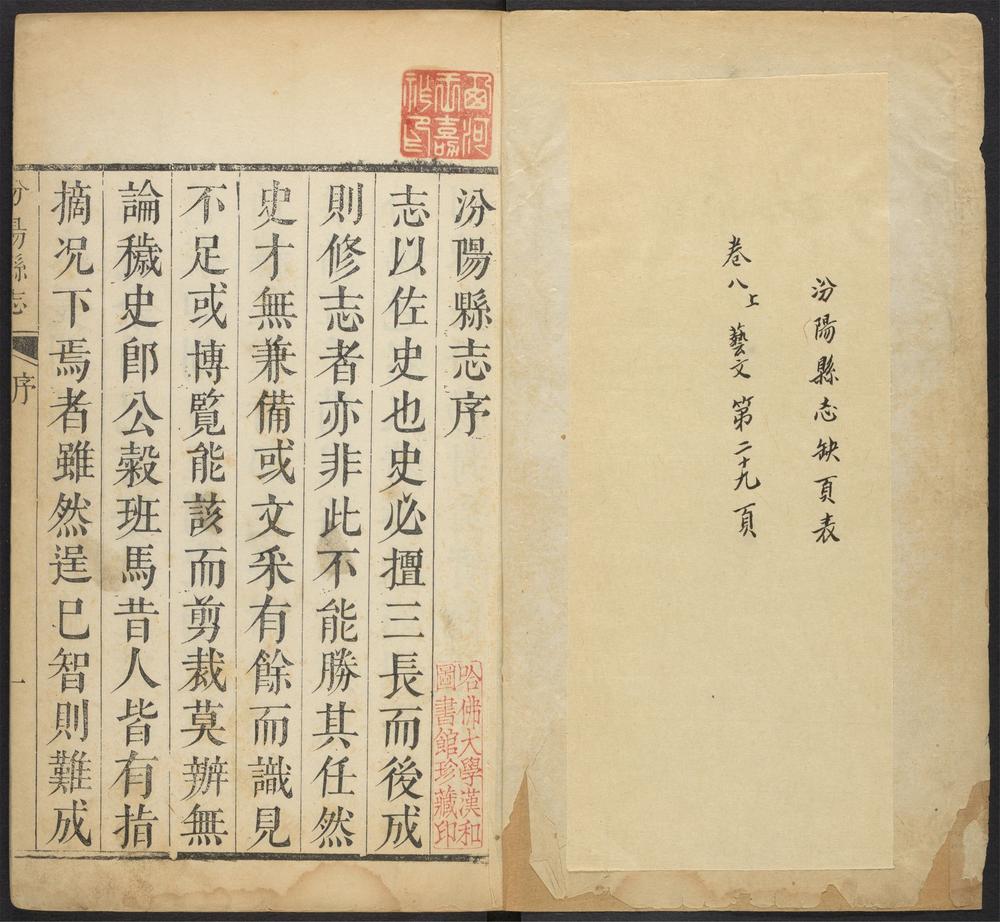 汾陽縣志缺頁表
卷八上 藝文 第二十九頁
汾陽縣志序
志以佐史也史必擅三長而後成
則修志者亦非此不能勝其任然
史才無兼備或文采有餘而識見
不足或博覽能該而剪裁莫辦無
論穢史卽公穀班馬昔人皆有指
摘况下焉者雖然逞巳智則難成
汾陽縣志
序
一
哈佛大學漢和
圖書館珍藏印
西河
嘉
印